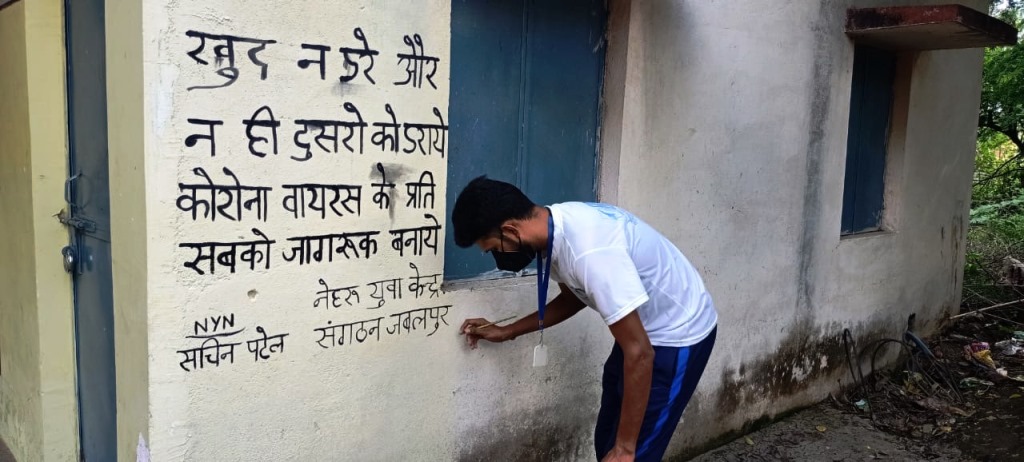 खुद न डरे और
न ही दुसरो को डराये
कोरोना वायरस के प्रति
सबको जागरूक बनाये
नेहरू युवा केन्द्र
संगठन जबलपुर
NYN
सचिन पटेल